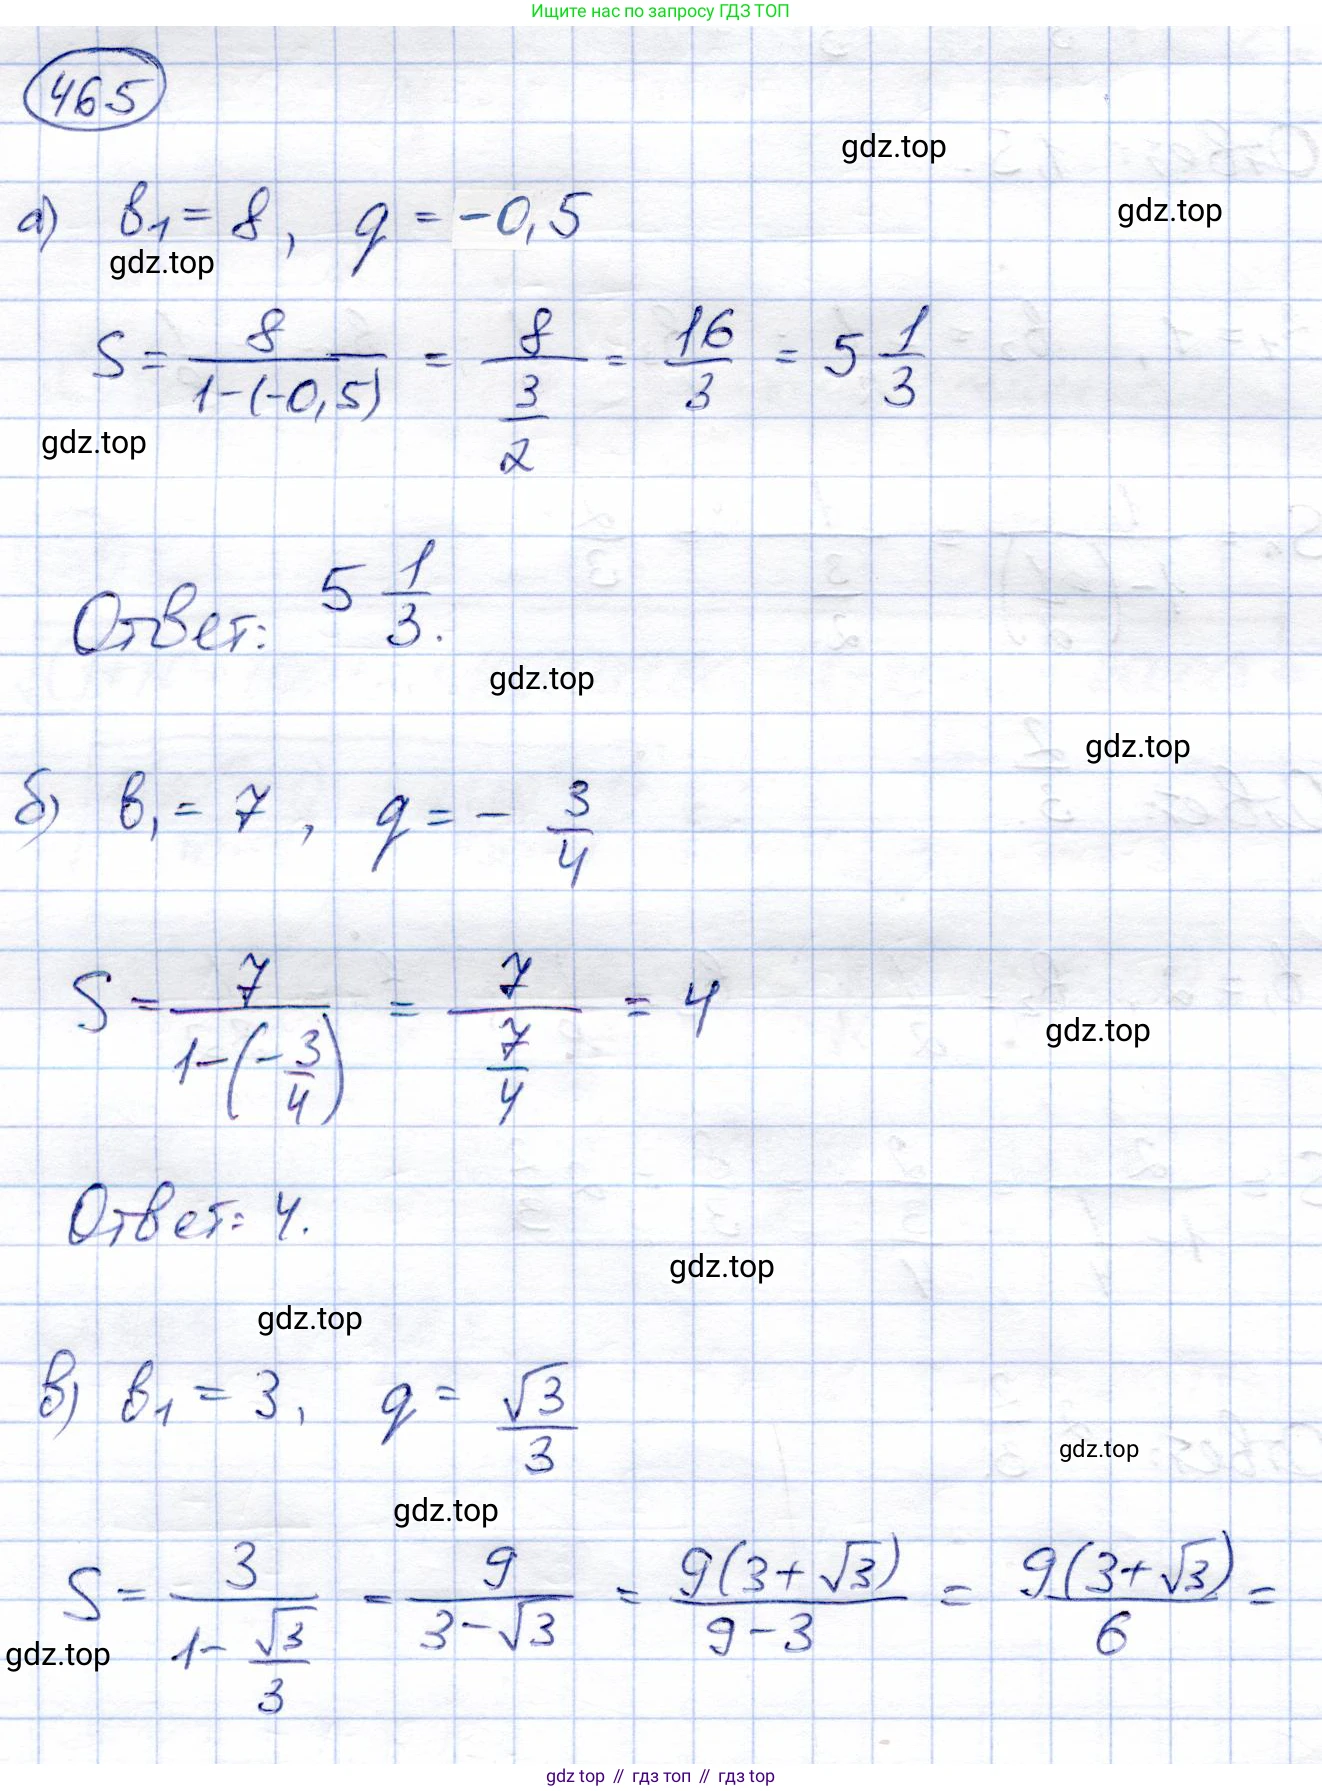 Ищите нас по запросу ГДЗ ТОП
465
gdz.top
gdz.top
а) b₁ = 8, q = -0,5
gdz.top
S = 8/(1-(-0,5)) = 8/(3/2) = 16/3 = 5 1/3
gdz.top
Ответ: 5 1/3.
gdz.top
gdz.top
б) b₁ = 7, q = - 3/4
S = 7/(1-(-3/4)) = 7/(7/4) = 4
gdz.top
Ответ: 4.
gdz.top
gdz.top
в) b₁ = 3, q = √3/3
gdz.top
gdz.top
S = 3/(1-√3/3) = 9/(3-√3) = 9(3+√3)/(9-3) = 9(3+√3)/6 =
gdz.top
gdz top // гдз топ // gdz top